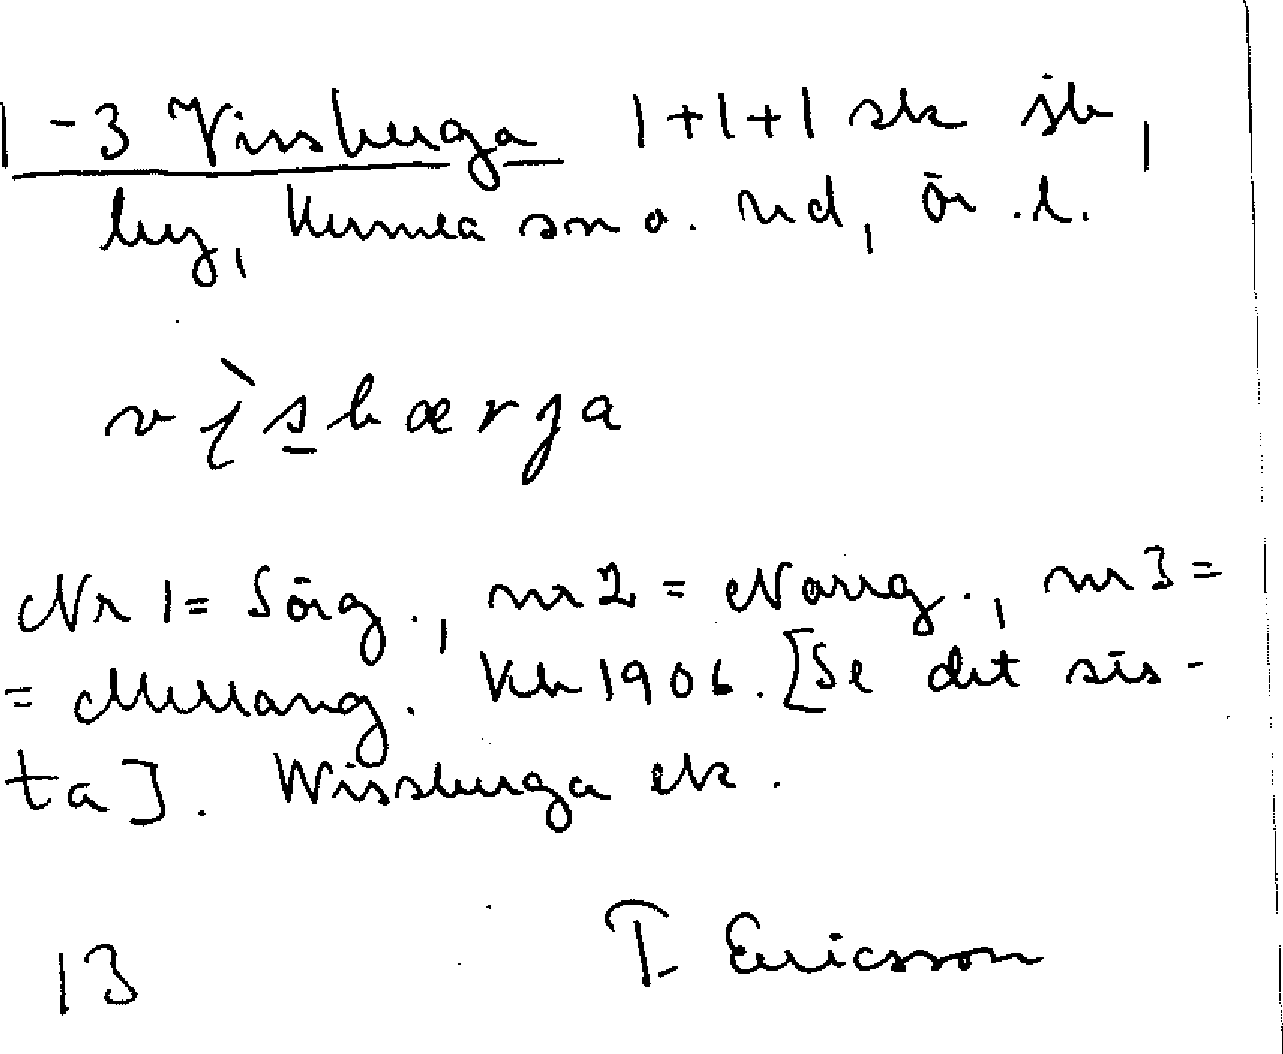 1-3 Vissberga 1+1+1 sk jb,
by, Kumla sn o. hd, Ör. l.
vìsbærja
Nr 1 = Sörg., nr 2 = Norrg., nr 3 =
= Mellang. Kb 1906. [Se det sis-
ta]. Wissberga ek.
13 T Ericsson